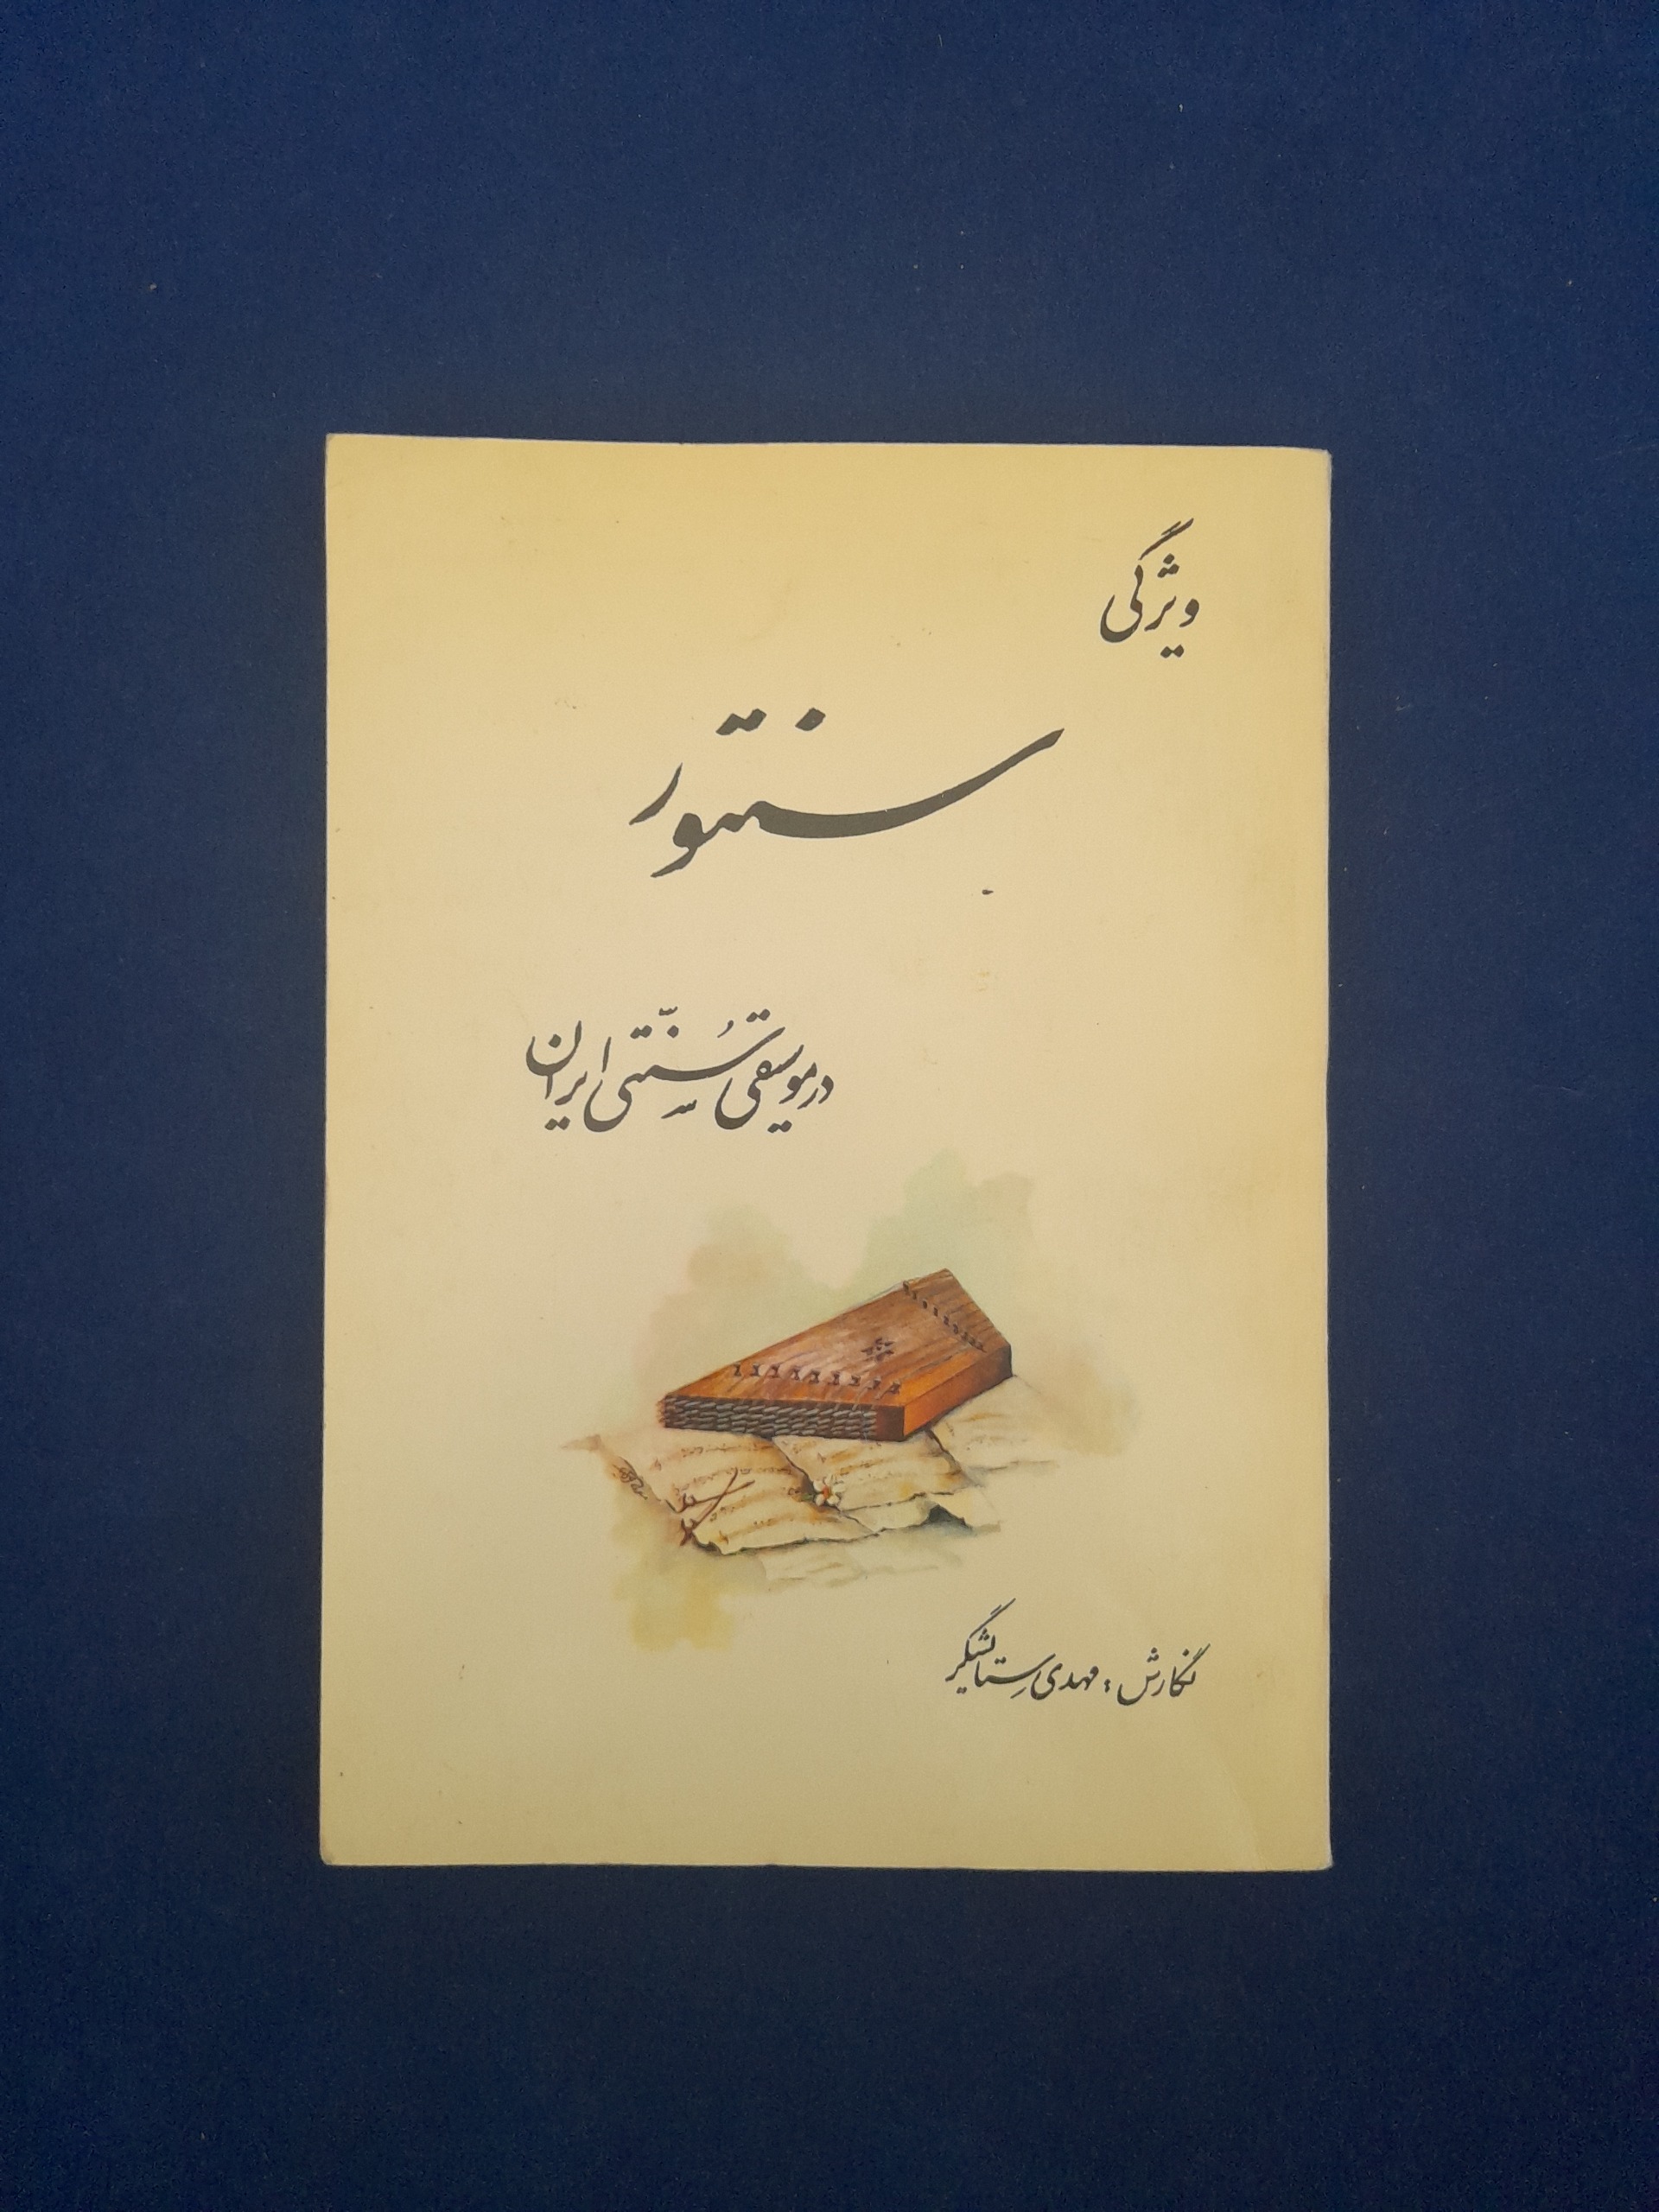 ویژگی
سنتور
در موسیقی سُنّتی ایران
نگارش : مهدی ستایشگر